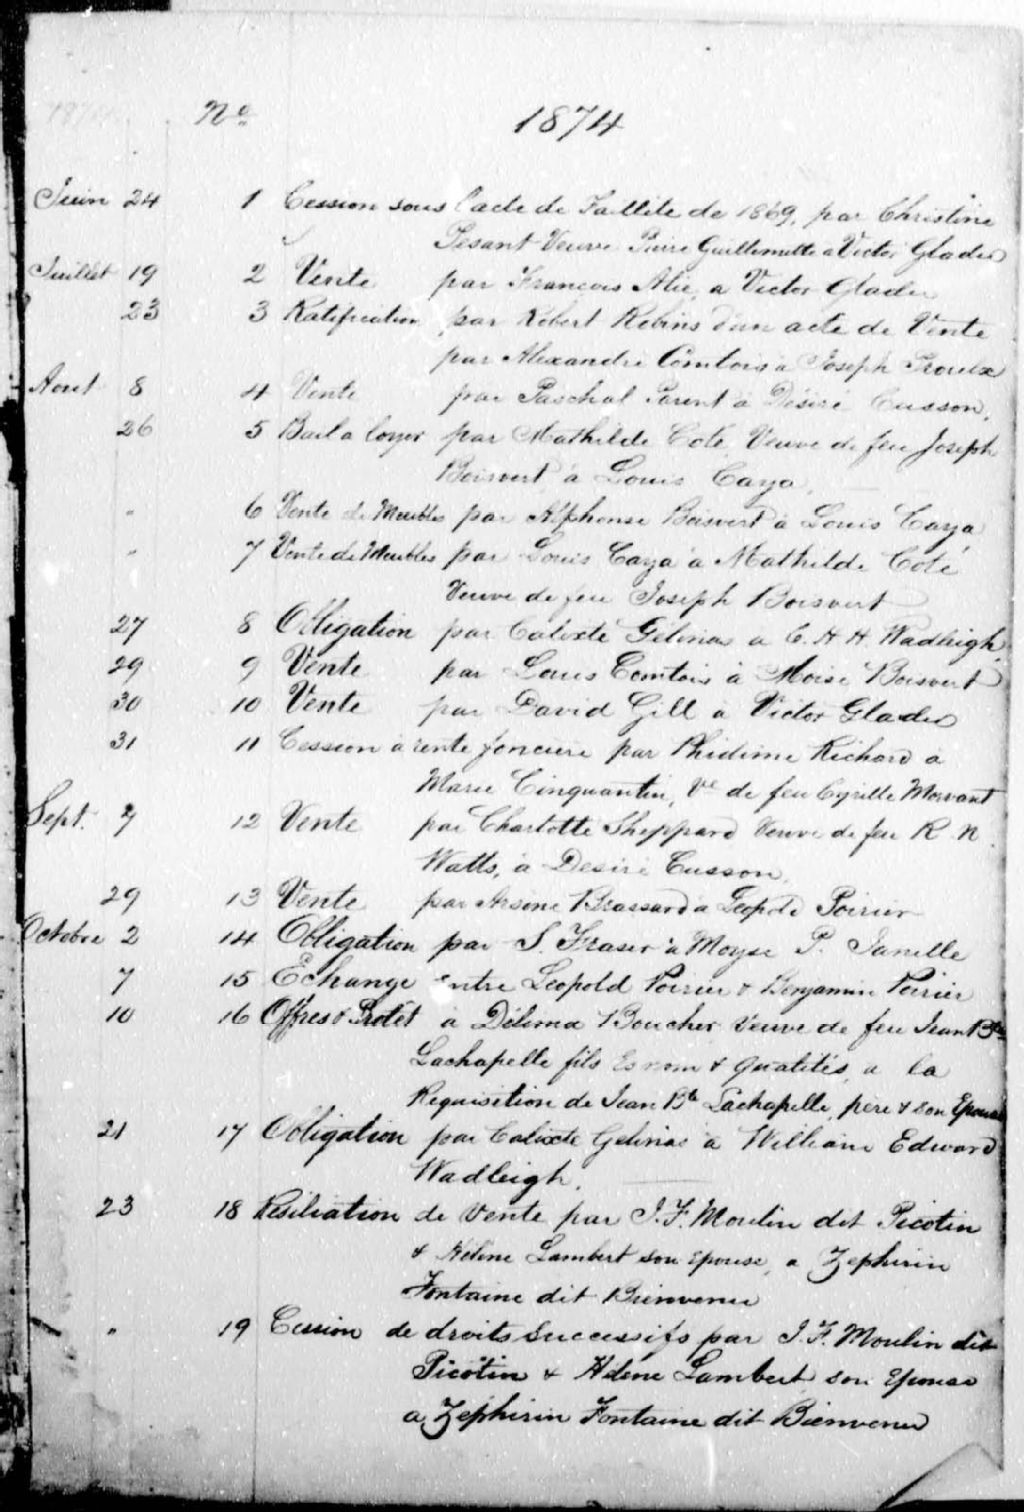 No 1874
Juin 24 1 Cession sous l'acte de Faillite de 1869, par Christine
Pesant Veuve Pierre Guillemette a Victor Gladu
Juillet 19 2 Vente par François Alie, a Victor Gladu
23 3 Ratification par Robert Robins d'un acte de Vente
par Alexandre Comtois a Joseph Proulx
Aout 8 4 Vente par Paschal Parent à Désiré Cusson.
26 5 Bail a loyer par Mathilde Coté Veuve de feu Joseph
Boisvert à Louis Caya
" 6 Vente de Meubles par Alphonse Boisvert à Louis Caya
" 7 Vente de Meubles par Louis Caya à Mathilde Coté
Veuve de feu Joseph Boisvert
27 8 Obligation par Calixte Gelinas a C. H. H. Wadleigh
29 9 Vente par Louis Comtois à Moise Boisvert
30 10 Vente par David Gill a Victor Gladu
31 11 Cession à rente foncière par Phidime Richard a
Marie Cinquantin, Ve de feu Cyrille Morvant
Sept. 7 12 Vente par Charlotte Sheppard Veuve de feu R. N.
Watts, à Desiré Cusson.
29 13 Vente par Arsène Brassard a Leopold Poirier
Octobre 2 14 Obligation par S. Fraser à Moyse P. Janelle
7 15 Echange entre Leopold Poirier & Benjamin Poirier
10 16 Offres & Protêt à Délima Boucher Veuve de feu Jean Bte
Lachapelle fils Es nom & qualités, a la
Requisition de Jean Bte Lachapelle, père & son Epouse
21 17 Obligation par Calixte Gelinas à William Edward
Wadleigh.
23 18 Resiliation de Vente par J. F. Moulin dit Picotin
& Hélène Lambert son epouse, a Zephirin
Fontaine dit Bienvenu
" 19 Cession de droits successifs par J. F. Moulin dit
Picotin & Hélène Lambert son Epouse
a Zéphirin Fontaine dit Bienvenu